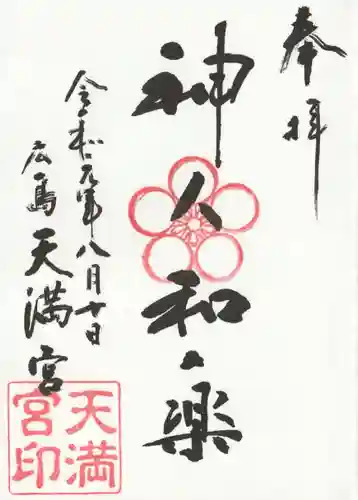 奉拝
神人和楽
令和元年八月十日
広島天満宮
天満
宮印